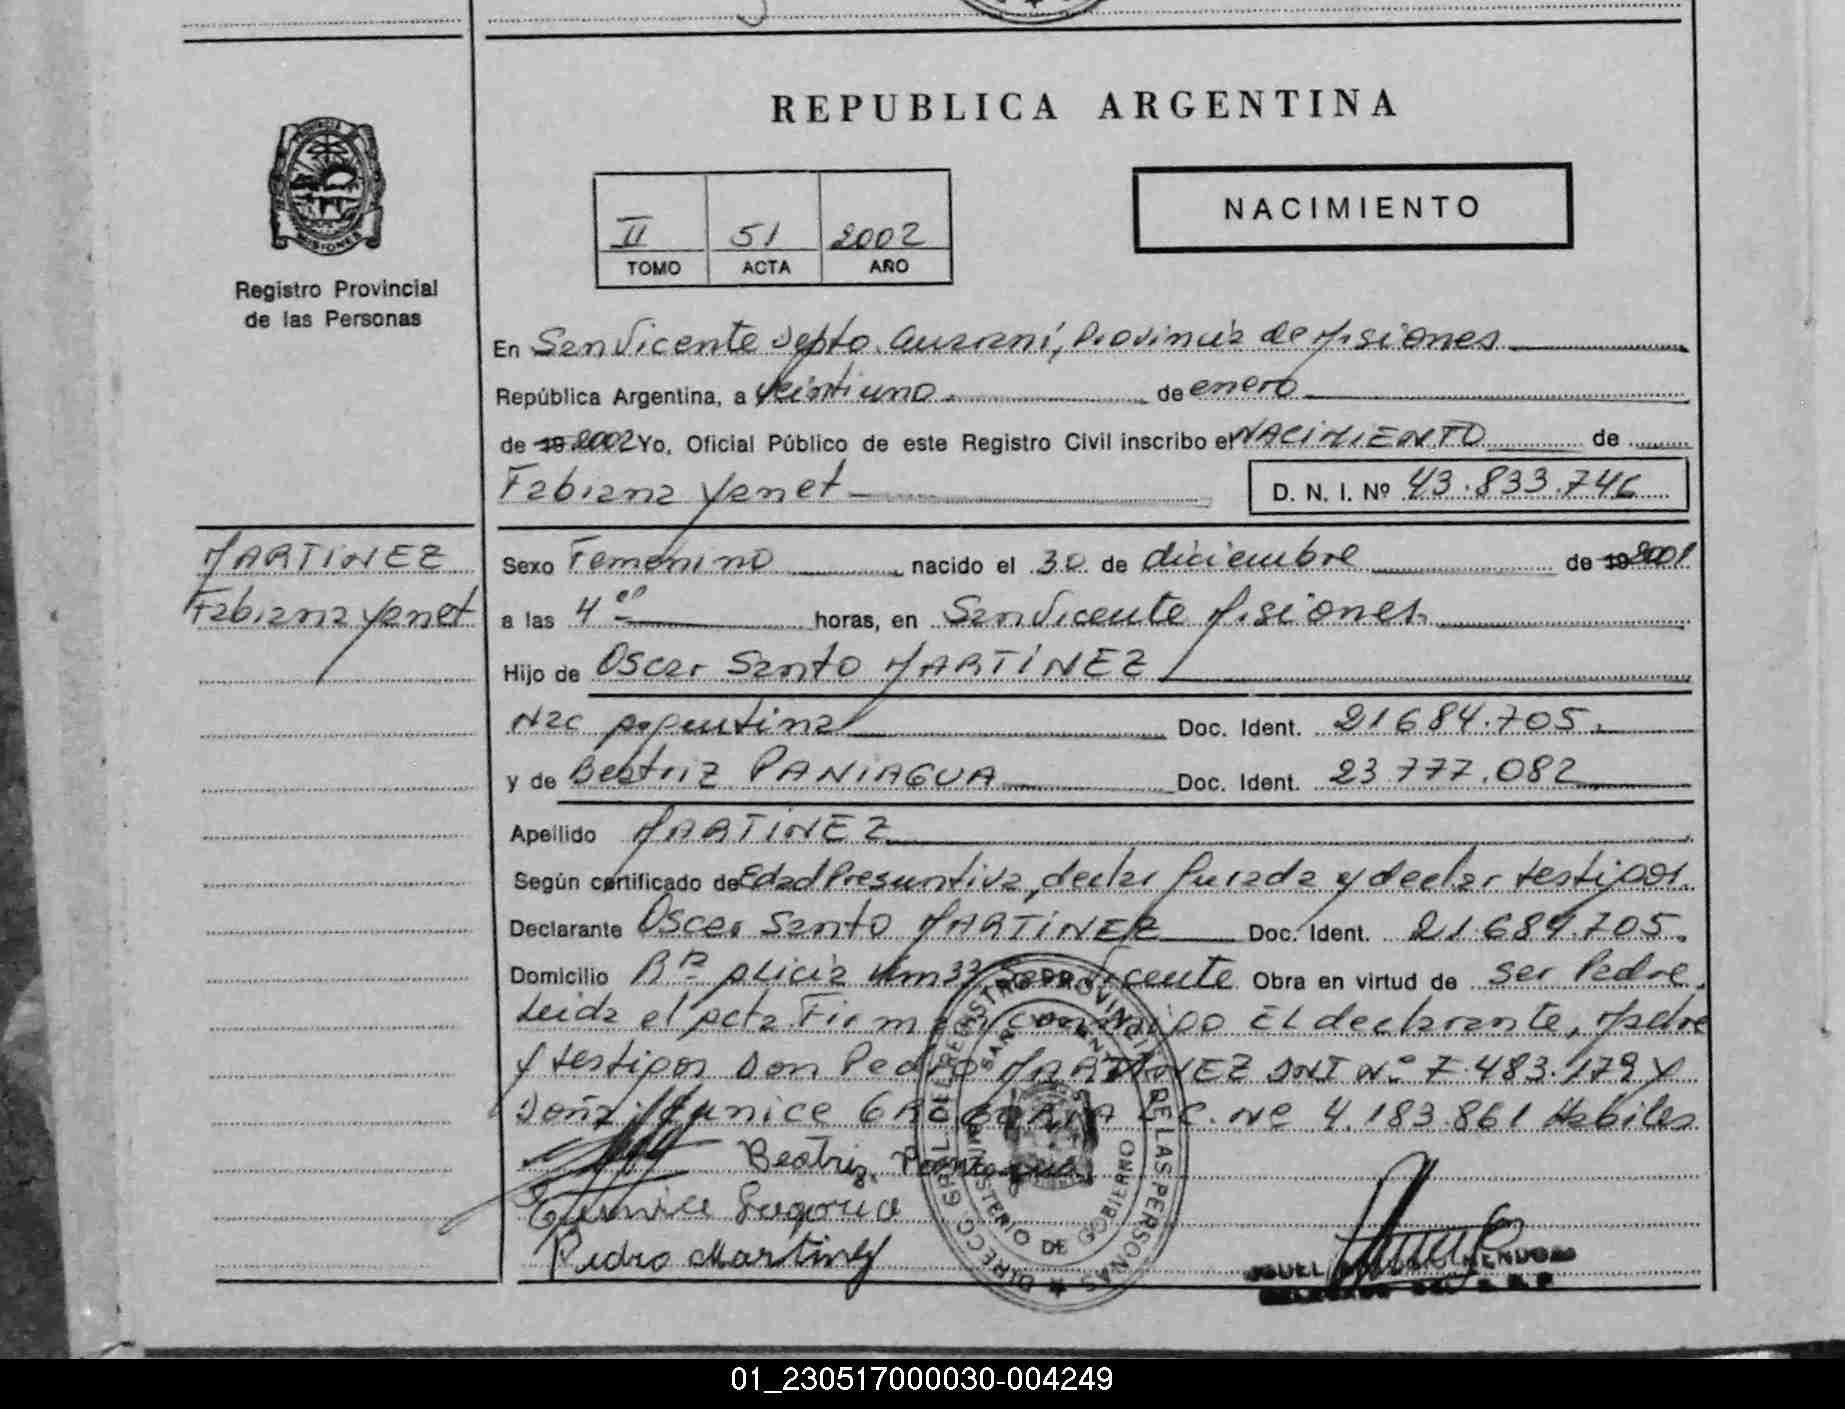 REPUBLICA ARGENTINA
PROVINCIA DE MISIONES
Registro Provincial
de las Personas
II 51 2002
TOMO ACTA AÑO
NACIMIENTO
En San Vicente Depto. Guaraní, Provincia de Misiones
República Argentina, a veintiuno de enero
de 19 2002 Yo, Oficial Público de este Registro Civil inscribo el NACIMIENTO de
Fabiana Yanet
D. N. I. Nº 43.833.746
MARTINEZ
Fabiana Yanet
Sexo Femenino nacido el 30 de diciembre de 19 2001
a las 4 horas, en San Vicente Misiones
Hijo de Oscar Santo MARTINEZ
Nac Argentina Doc. Ident. 21684.705.
y de Beatriz PANIAGUA Doc. Ident. 23.777.082
Apellido MARTINEZ
Según certificado de Edad Presuntiva, declar Jurada y declar testigos.
Declarante Oscar Santo MARTINEZ Doc. Ident. 21.684.705.
Domicilio Bº Alicia Km 33 San Vicente Obra en virtud de ser Padre
Leida el acta Firman conmigo El declarante, Madre
y testigos Don Pedro MARTINEZ DNI Nº 7.483.179 y
Doña Eunice L.C. Nº 4.183.861 Habiles
Beatriz Paniagua
Eunice
Pedro Martinez
DIRECC. GRAL. DEL REGISTRO PROVINCIAL DE LAS PERSONAS
SAN VICENTE
MINISTERIO DE GOBIERNO
MENDOZA
01_230517000030-004249